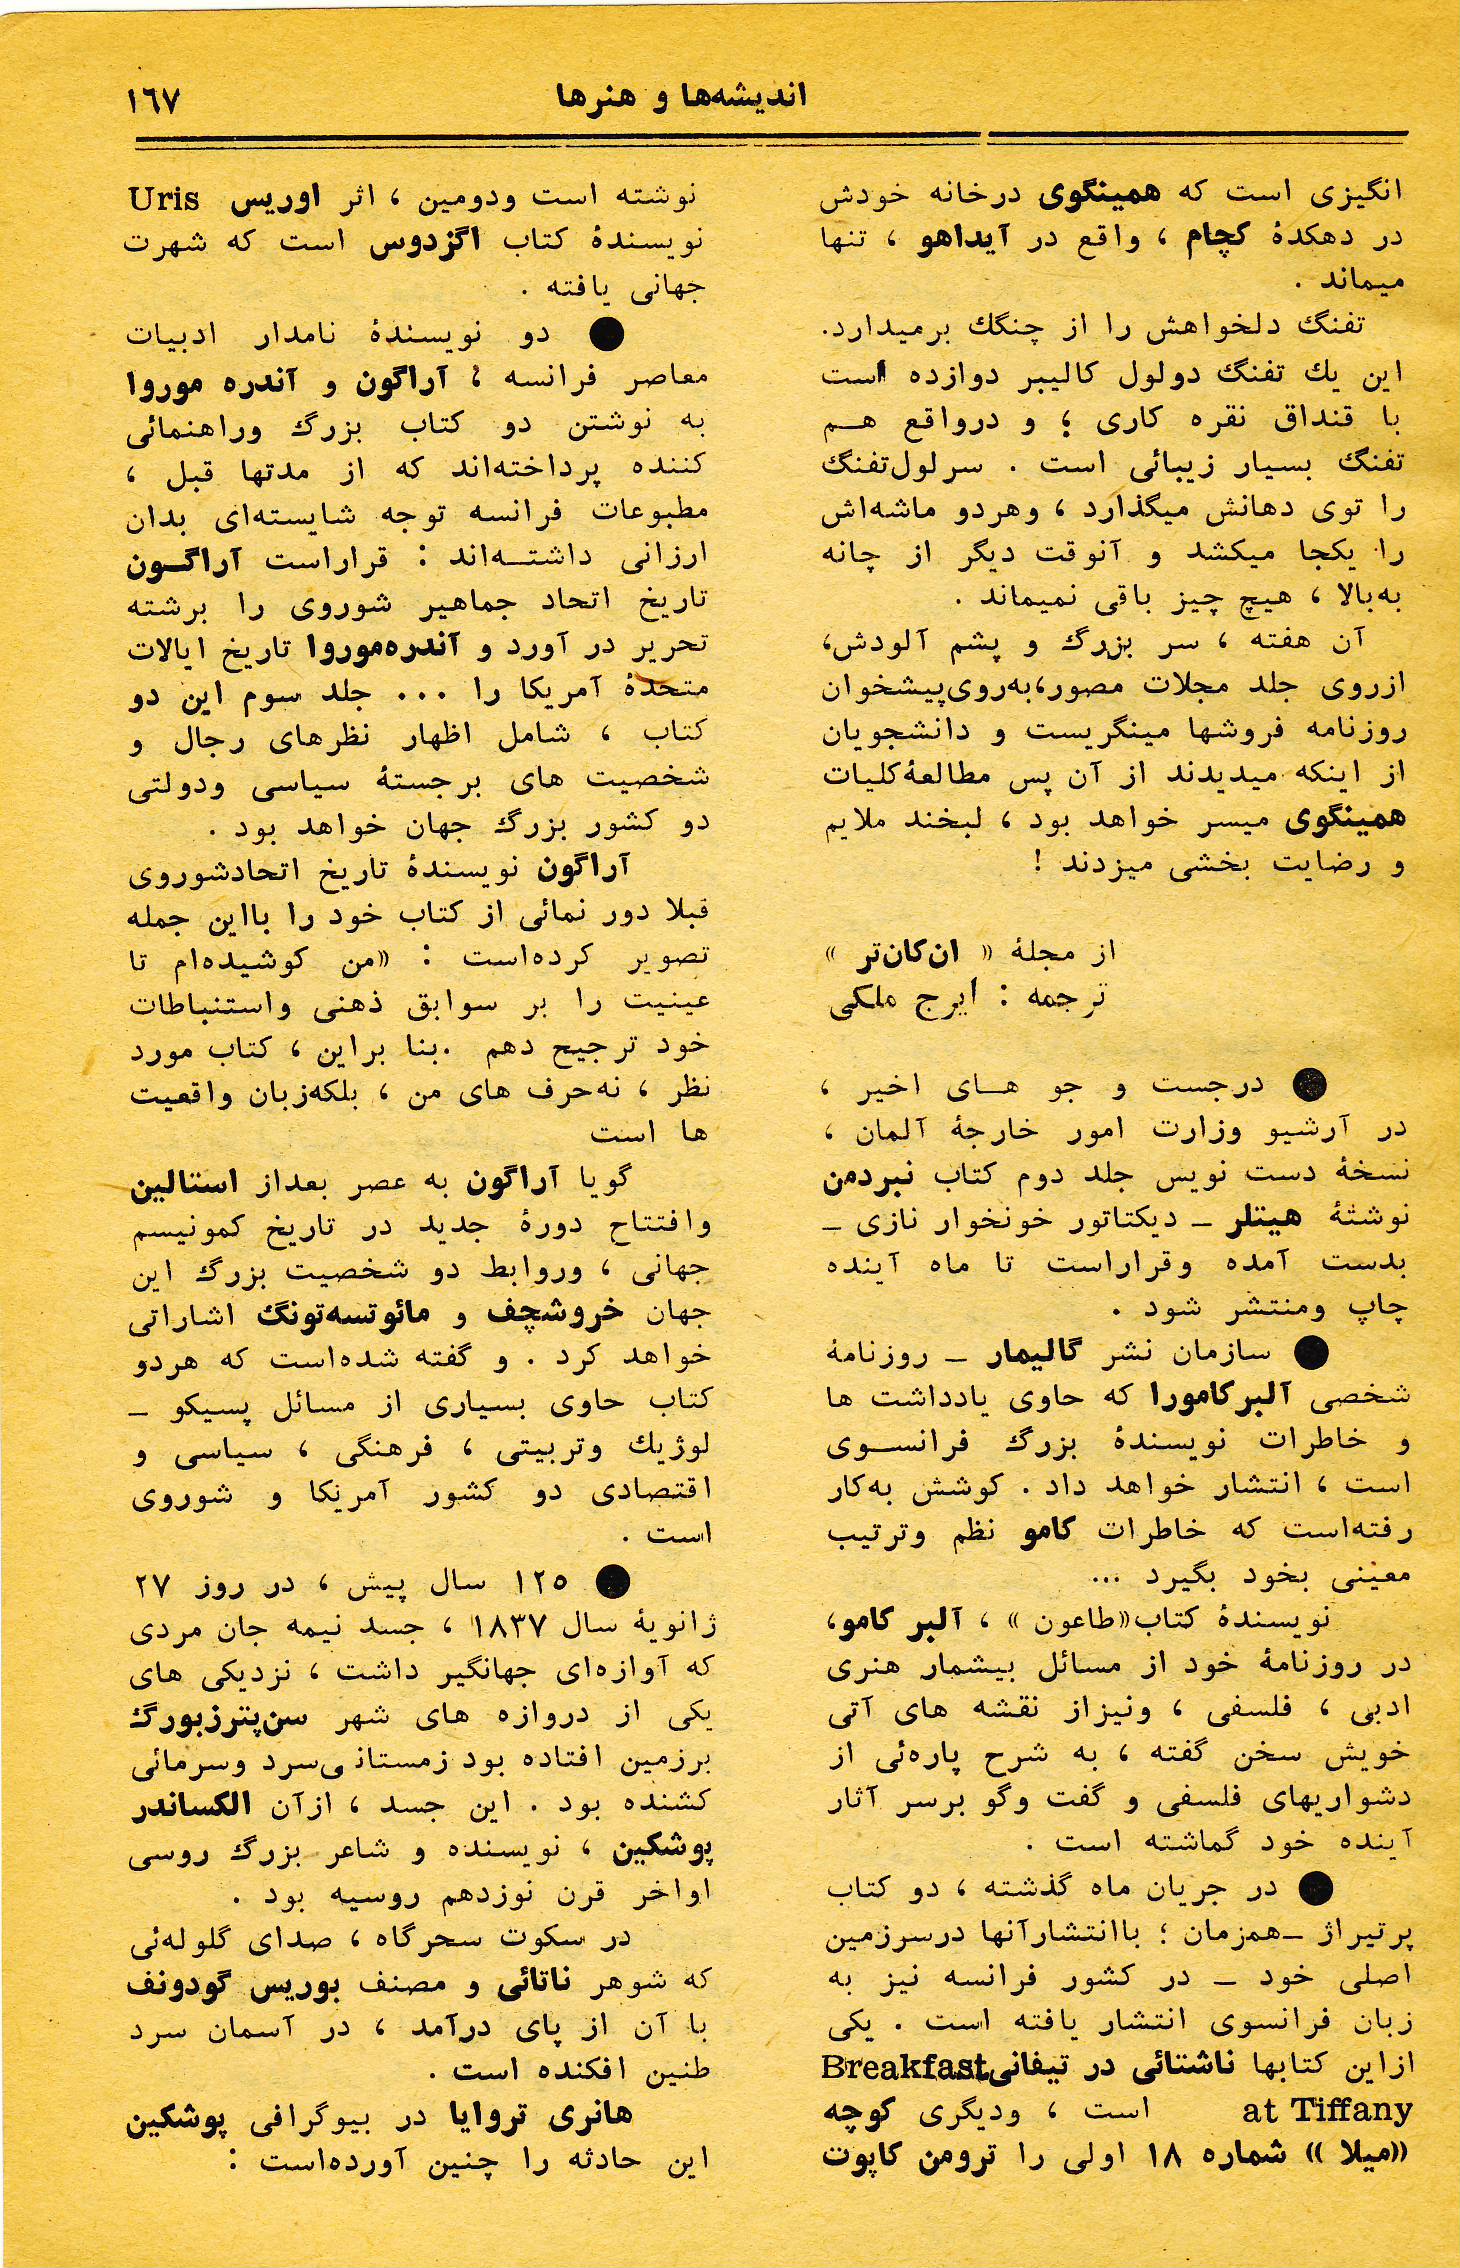 اندیشه‌ها و هنرها
١٦٧
انگیزی است که همینگوی درخانه خودش
در دهکدهٔ کچام ، واقع در آیداهو ، تنها
میماند .
تفنگ دلخواهش را از چنگك برمیدارد.
این یك تفنگ دولول کالیبر دوازده است
با قنداق نقره کاری ؛ و درواقع هـم
تفنگ بسیار زیبائی است . سرلول‌تفنگ
را توی دهانش میگذارد ، وهردو ماشه‌اش
را یکجا میکشد و آنوقت دیگر از چانه
به‌بالا ، هیچ چیز باقی نمیماند .
آن هفته ، سر بزرگ و پشم آلودش،
ازروی جلد مجلات مصور،به‌روی‌پیشخوان
روزنامه فروشها مینگریست و دانشجویان
از اینکه میدیدند از آن پس مطالعهٔ‌کلیات
همینگوی میسر خواهد بود ، لبخند ملایم
و رضایت بخشی میزدند !
از مجلهٔ « ان‌کان‌تر »
ترجمه : ایرج ملکی
● درجست و جو هـای اخیر ،
در آرشیو وزارت امور خارجهٔ آلمان ،
نسخهٔ دست نویس جلد دوم کتاب نبردمن
نوشتهٔ هیتلر ـ دیکتاتور خونخوار نازی ـ
بدست آمده وقراراست تا ماه آینده
چاپ ومنتشر شود .
● سازمان نشر گالیمار ـ روزنامهٔ
شخصی آلبرکامورا که حاوی یادداشت ها
و خاطرات نویسندهٔ بزرگ فرانسـوی
است ، انتشار خواهد داد . کوشش به‌کار
رفته‌است که خاطرات کامو نظم وترتیب
معینی بخود بگیرد ...
نویسندهٔ کتاب«طاعون » ، آلبر کامو،
در روزنامهٔ خود از مسائل بیشمار هنری
ادبی ، فلسفی ، ونیزاز نقشه های آتی
خویش سخن گفته ، به شرح پاره‌ئی از
دشواریهای فلسفی و گفت وگو برسر آثار
آینده خود گماشته است .
● در جریان ماه گذشته ، دو کتاب
پرتیراژ ـ‌همزمان ؛ باانتشارآنها درسرزمین
اصلی خود ـ در کشور فرانسه نیز به
زبان فرانسوی انتشار یافته است . یکی
ازاین کتابها ناشتائی در تیفانی‌Breakfast
at Tiffany است ، ودیگری کوچه
«میلا » شماره ١٨ اولی را ترومن کاپوت
نوشته است ودومین ، اثر اوریس Uris
نویسندهٔ کتاب اگزدوس است که شهرت
جهانی یافته .
● دو نویسندهٔ نامدار ادبیات
معاصر فرانسه ؛ آراگون و آندره موروا
به نوشتن دو کتاب بزرگ وراهنمائی
کننده پرداخته‌اند که از مدتها قبل ،
مطبوعات فرانسه توجه شایسته‌ای بدان
ارزانی داشتـه‌اند : قراراست آراگـون
تاریخ اتحاد جماهیر شوروی را برشته
تحریر در آورد و آندره‌موروا تاریخ ایالات
متحدهٔ آمریکا را ... جلد سوم این دو
کتاب ، شامل اظهار نظرهای رجال و
شخصیت های برجستهٔ سیاسی ودولتی
دو کشور بزرگ جهان خواهد بود .
آراگون نویسندهٔ تاریخ اتحادشوروی
قبلا دور نمائی از کتاب خود را بااین جمله
تصویر کرده‌است : «من کوشیده‌ام تا
عینیت را بر سوابق ذهنی واستنباطات
خود ترجیح دهم .بنا براین ، کتاب مورد
نظر ، نه‌حرف های من ، بلکه‌زبان واقعیت
ها است
گویا آراگون به عصر بعداز استالین
وافتتاح دورهٔ جدید در تاریخ کمونیسم
جهانی ، وروابط دو شخصیت بزرگ این
جهان خروشچف و مائوتسه‌تونگ اشاراتی
خواهد کرد . و گفته شده‌است که هردو
کتاب حاوی بسیاری از مسائل پسیکو ـ
لوژیك وتربیتی ، فرهنگی ، سیاسی و
اقتصادی دو کشور آمریکا و شوروی
است .
● ١٢٥ سال پیش ، در روز ٢٧
ژانویهٔ سال ١٨٣٧ ، جسد نیمه جان مردی
که آوازه‌ای جهانگیر داشت ، نزدیکی های
یکی از دروازه های شهر سن‌پترزبورگ
برزمین افتاده بود زمستانی‌سرد وسرمائی
کشنده بود . این جسد ، ازآن الکساندر
پوشکین ، نویسنده و شاعر بزرگ روسی
اواخر قرن نوزدهم روسیه بود .
در سکوت سحرگاه ، صدای گلوله‌ئی
که شوهر ناتائی و مصنف بوریس گودونف
با آن از پای درآمد ، در آسمان سرد
طنین افکنده است .
هانری تروایا در بیوگرافی پوشکین
این حادثه را چنین آورده‌است :